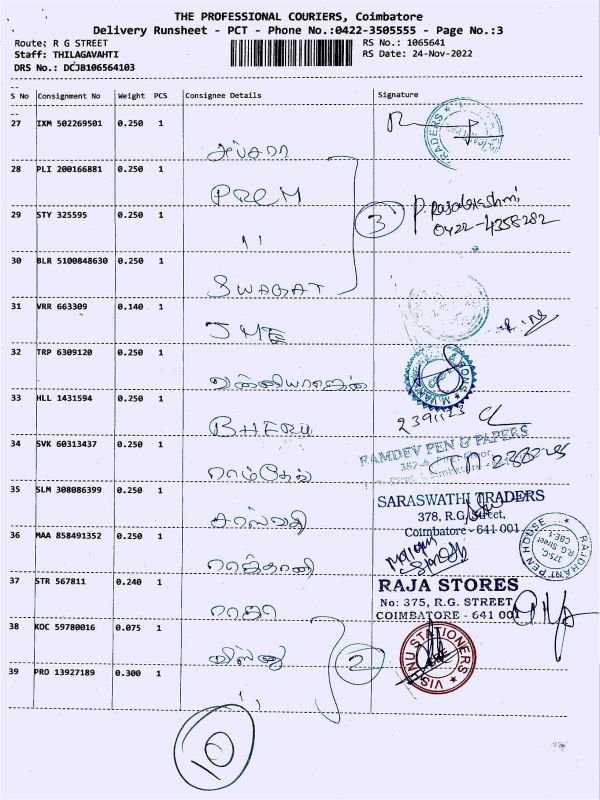 THE PROFESSIONAL COURIERS, Coimbatore
Delivery Runsheet - PCT - Phone No.:0422-3505555 - Page No.:3
Route: R G STREET
Staff: THILAGAVAHTI
DRS No.: DCJB106564103
RS No.: 1065641
RS Date: 24-Nov-2022
S No Consignment No Weight PCS Consignee Details Signature
27 IXM 502269501 0.250 1
TRADERS
அப்சரா
28 PLI 200166881 0.250 1
PREM
P. Rajalakshmi
0422-4358282
29 STY 325595 0.250 1
3
"
30 BLR 5100848630 0.250 1
SWAGAT
31 VRR 663309 0.140 1
JME
32 TRP 6309120 0.250 1
& SONS
33 HLL 1431594 0.250 1
2391123
BHERU
RAMDEV PEN & PAPERS
34 SVK 60313437 0.250 1
ராம்தேவ்
35 SLM 308086399 0.250 1
SARASWATHI TRADERS
378, R.G. Street,
Coimbatore - 641 001
சரஸ்வதி
36 MAA 858491352 0.250 1
RAJDHANI PEN HOUSE
375-C,
R.G. Street
CBE-1
ராஜ்தானி
37 STR 567811 0.240 1
RAJA STORES
No: 375, R.G. STREET
COIMBATORE - 641 001
ராஜா
38 KOC 59780016 0.075 1
VISHNU STATIONERS
CBE
விஸ்னு
2
39 PRO 13927189 0.300 1
"
10